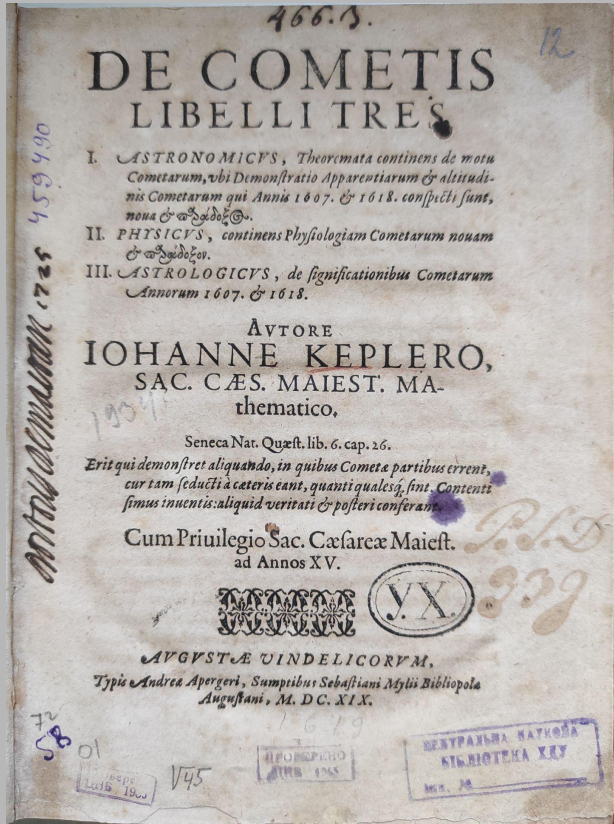 466.3.
12
DE COMETIS
LIBELLI TRES
I. ASTRONOMICVS, Theoremata continens de motu
Cometarum, vbi Demonſtratio Apparentiarum & altitudi-
nis Cometarum qui Annis 1607. & 1618. conſpecti ſunt,
noua &
II. PHYSICVS, continens Phyſiologiam Cometarum nouam
&
III. ASTROLOGICVS, de ſignificationibus Cometarum
Annorum 1607. & 1618.
AVTORE
IOHANNE KEPLERO,
SAC. CÆS. MAIEST. MA-
thematico.
Seneca Nat. Quæſt. lib. 6. cap. 26.
Erit qui demonſtret aliquando, in quibus Cometæ partibus errent,
cur tam ſeducti à cæteris eant, quanti qualesq́; ſint. Contenti
ſimus inuentis: aliquid veritati & poſteri conferant.
Cum Priuilegio Sac. Cæſareæ Maieſt.
ad Annos XV.
Y.X.
AVGVSTÆ VINDELICORVM,
Typis Andreæ Apergeri, Sumptibus Sebaſtiani Mylii Bibliopolæ
Auguſtani, M. DC. XIX.
459490
1725
P.S.D
339
1619
72
58
01
V45
ПРОВЕРЕНО
ЦНБ 1965
ЦЕНТРАЛЬНА НАУКОВА
БІБЛІОТЕКА ХДУ
Инв. №